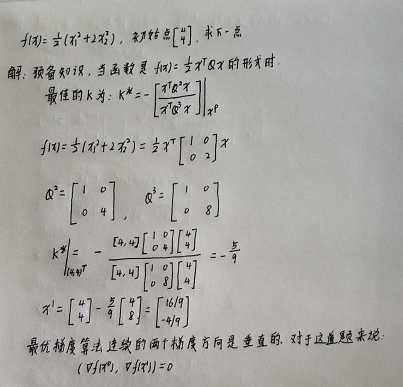 f(x)=½(x₁²+2x₂²), 初始点[4 4], 求下一点
解: 预备知识, 当函数是 f(x)=½xᵀQx 的形式时,
最佳的K为: K*=-[xᵀQ²x / xᵀQ³x]|x⁰
f(x)=½(x₁²+2x₂²)=½xᵀ[1 0; 0 2]x
Q²=[1 0; 0 4], Q³=[1 0; 0 8]
K*|(4,4)ᵀ = - [4,4][1 0; 0 4][4 4] / [4,4][1 0; 0 8][4 4] = -5/9
x¹=[4 4]-5/9[4 8]=[16/9 -4/9]
最优梯度算法连续的两个梯度方向是垂直的. 对于这道题来说:
(∇f(x⁰), ∇f(x¹))=0